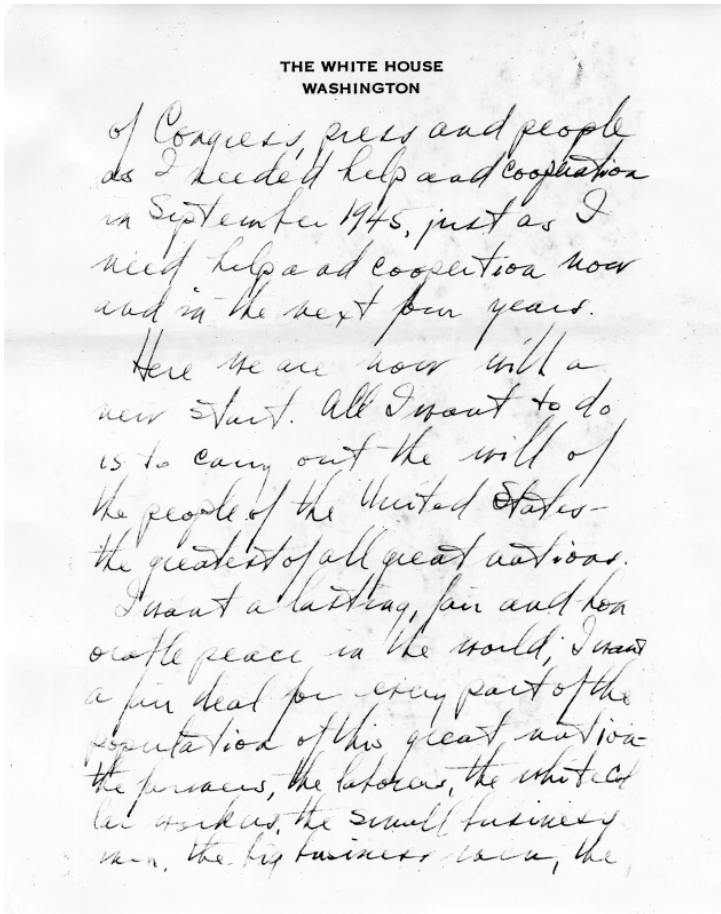 THE WHITE HOUSE
WASHINGTON
of Congress, press and people
as I needed help and cooperation
in September 1945, just as I
need help and coopertion now
and in the next four years.
Here we are now with a
new start. All I want to do
is to carry out the will of
the people of the United States—
the greatest of all great nations.
I want a lasting, fair and hon
orable peace in the world; I want
a fair deal for every part of the
population of this great nation—
the farmers, the laborers, the white col
lar workers, the small business
men, the big business men, the